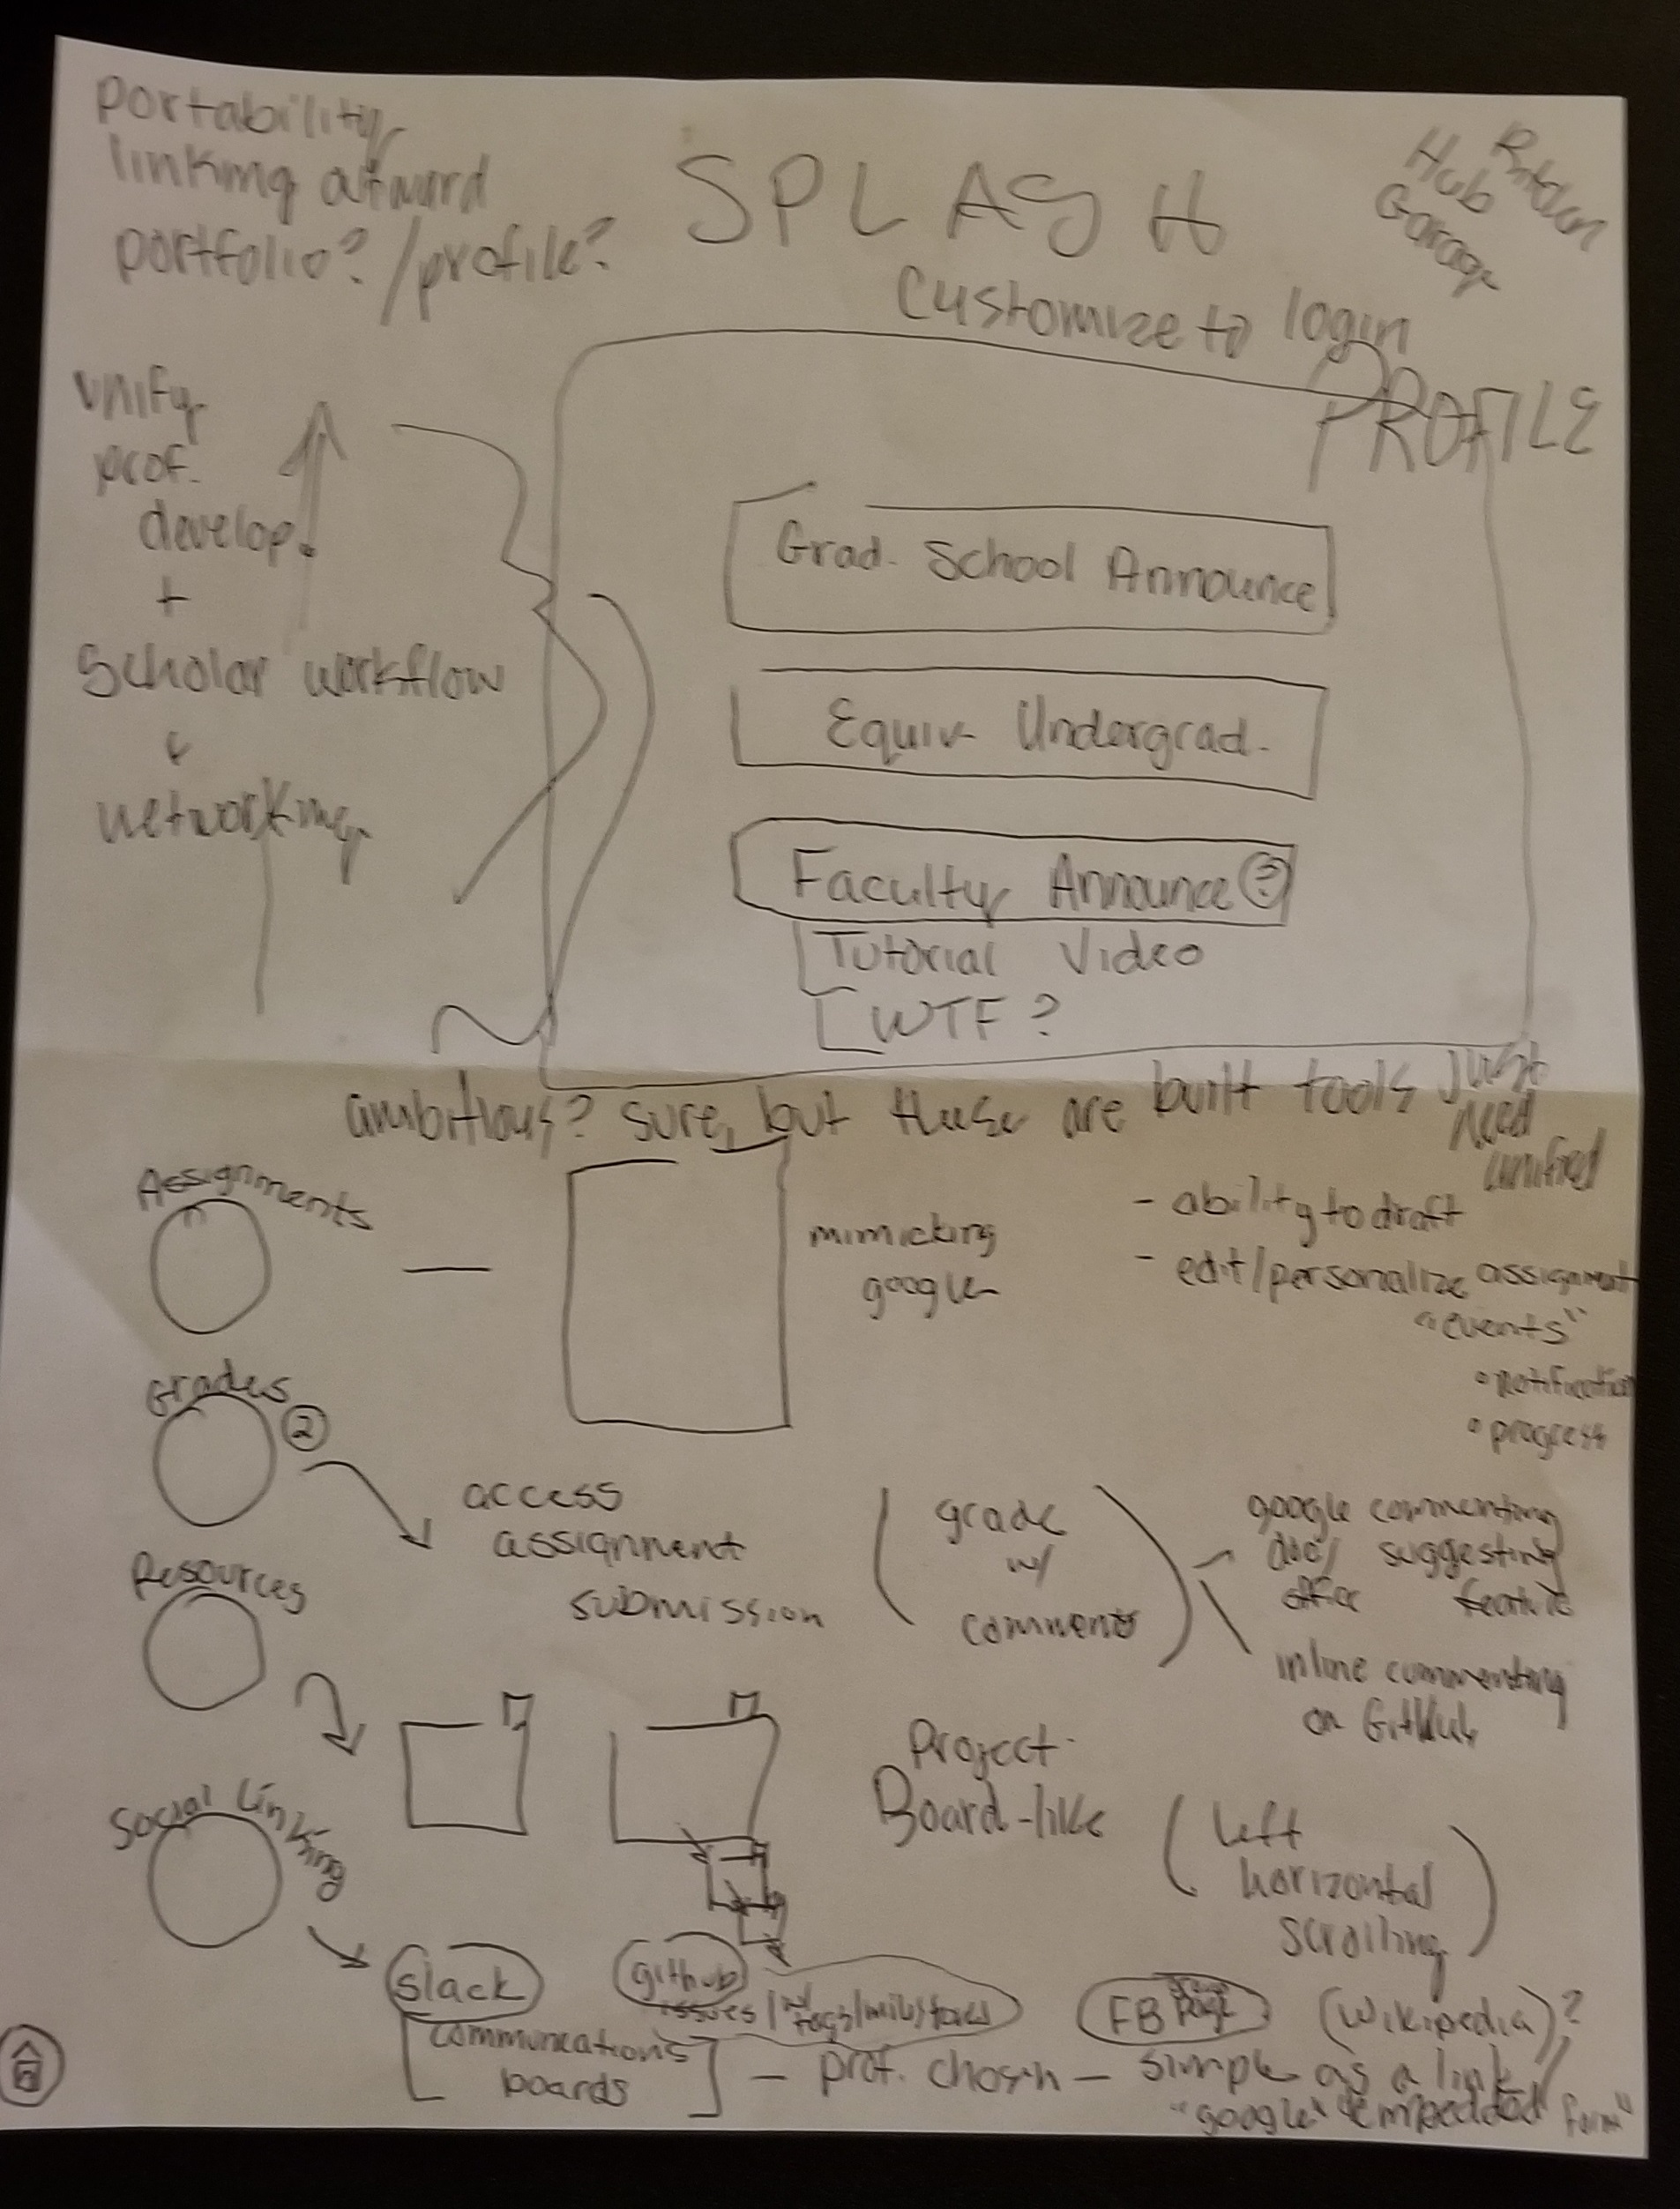 portability
linking atward
portfolio? / profile?
SPLASH
Hub
Garage
Customize to login
PROFILE
unify
prof.
develop.
+
Scholar workflow
networking
Grad. School Announce
Equiv. Undergrad.
Faculty Announce ?
Tutorial Video
WTF?
ambitious? sure, but these are built tools just
need
unified
Assignments
mimicking
google
- ability to draft
- edit/personalize assignment
"events"
• notification
• progress
Grades
2
access
assignment
submission
grade
w/
comments
google commenting
doc/ suggesting
office feature
inline commenting
on GitHub
Resources
Project
Board-like
(left
horizontal
scrolling)
Social Linking
slack
github
issues / w/ tags/milestones
FB Page
(Wikipedia)?
communications
boards
- prof. chosen - simple as a link /
"google" "embedded form"